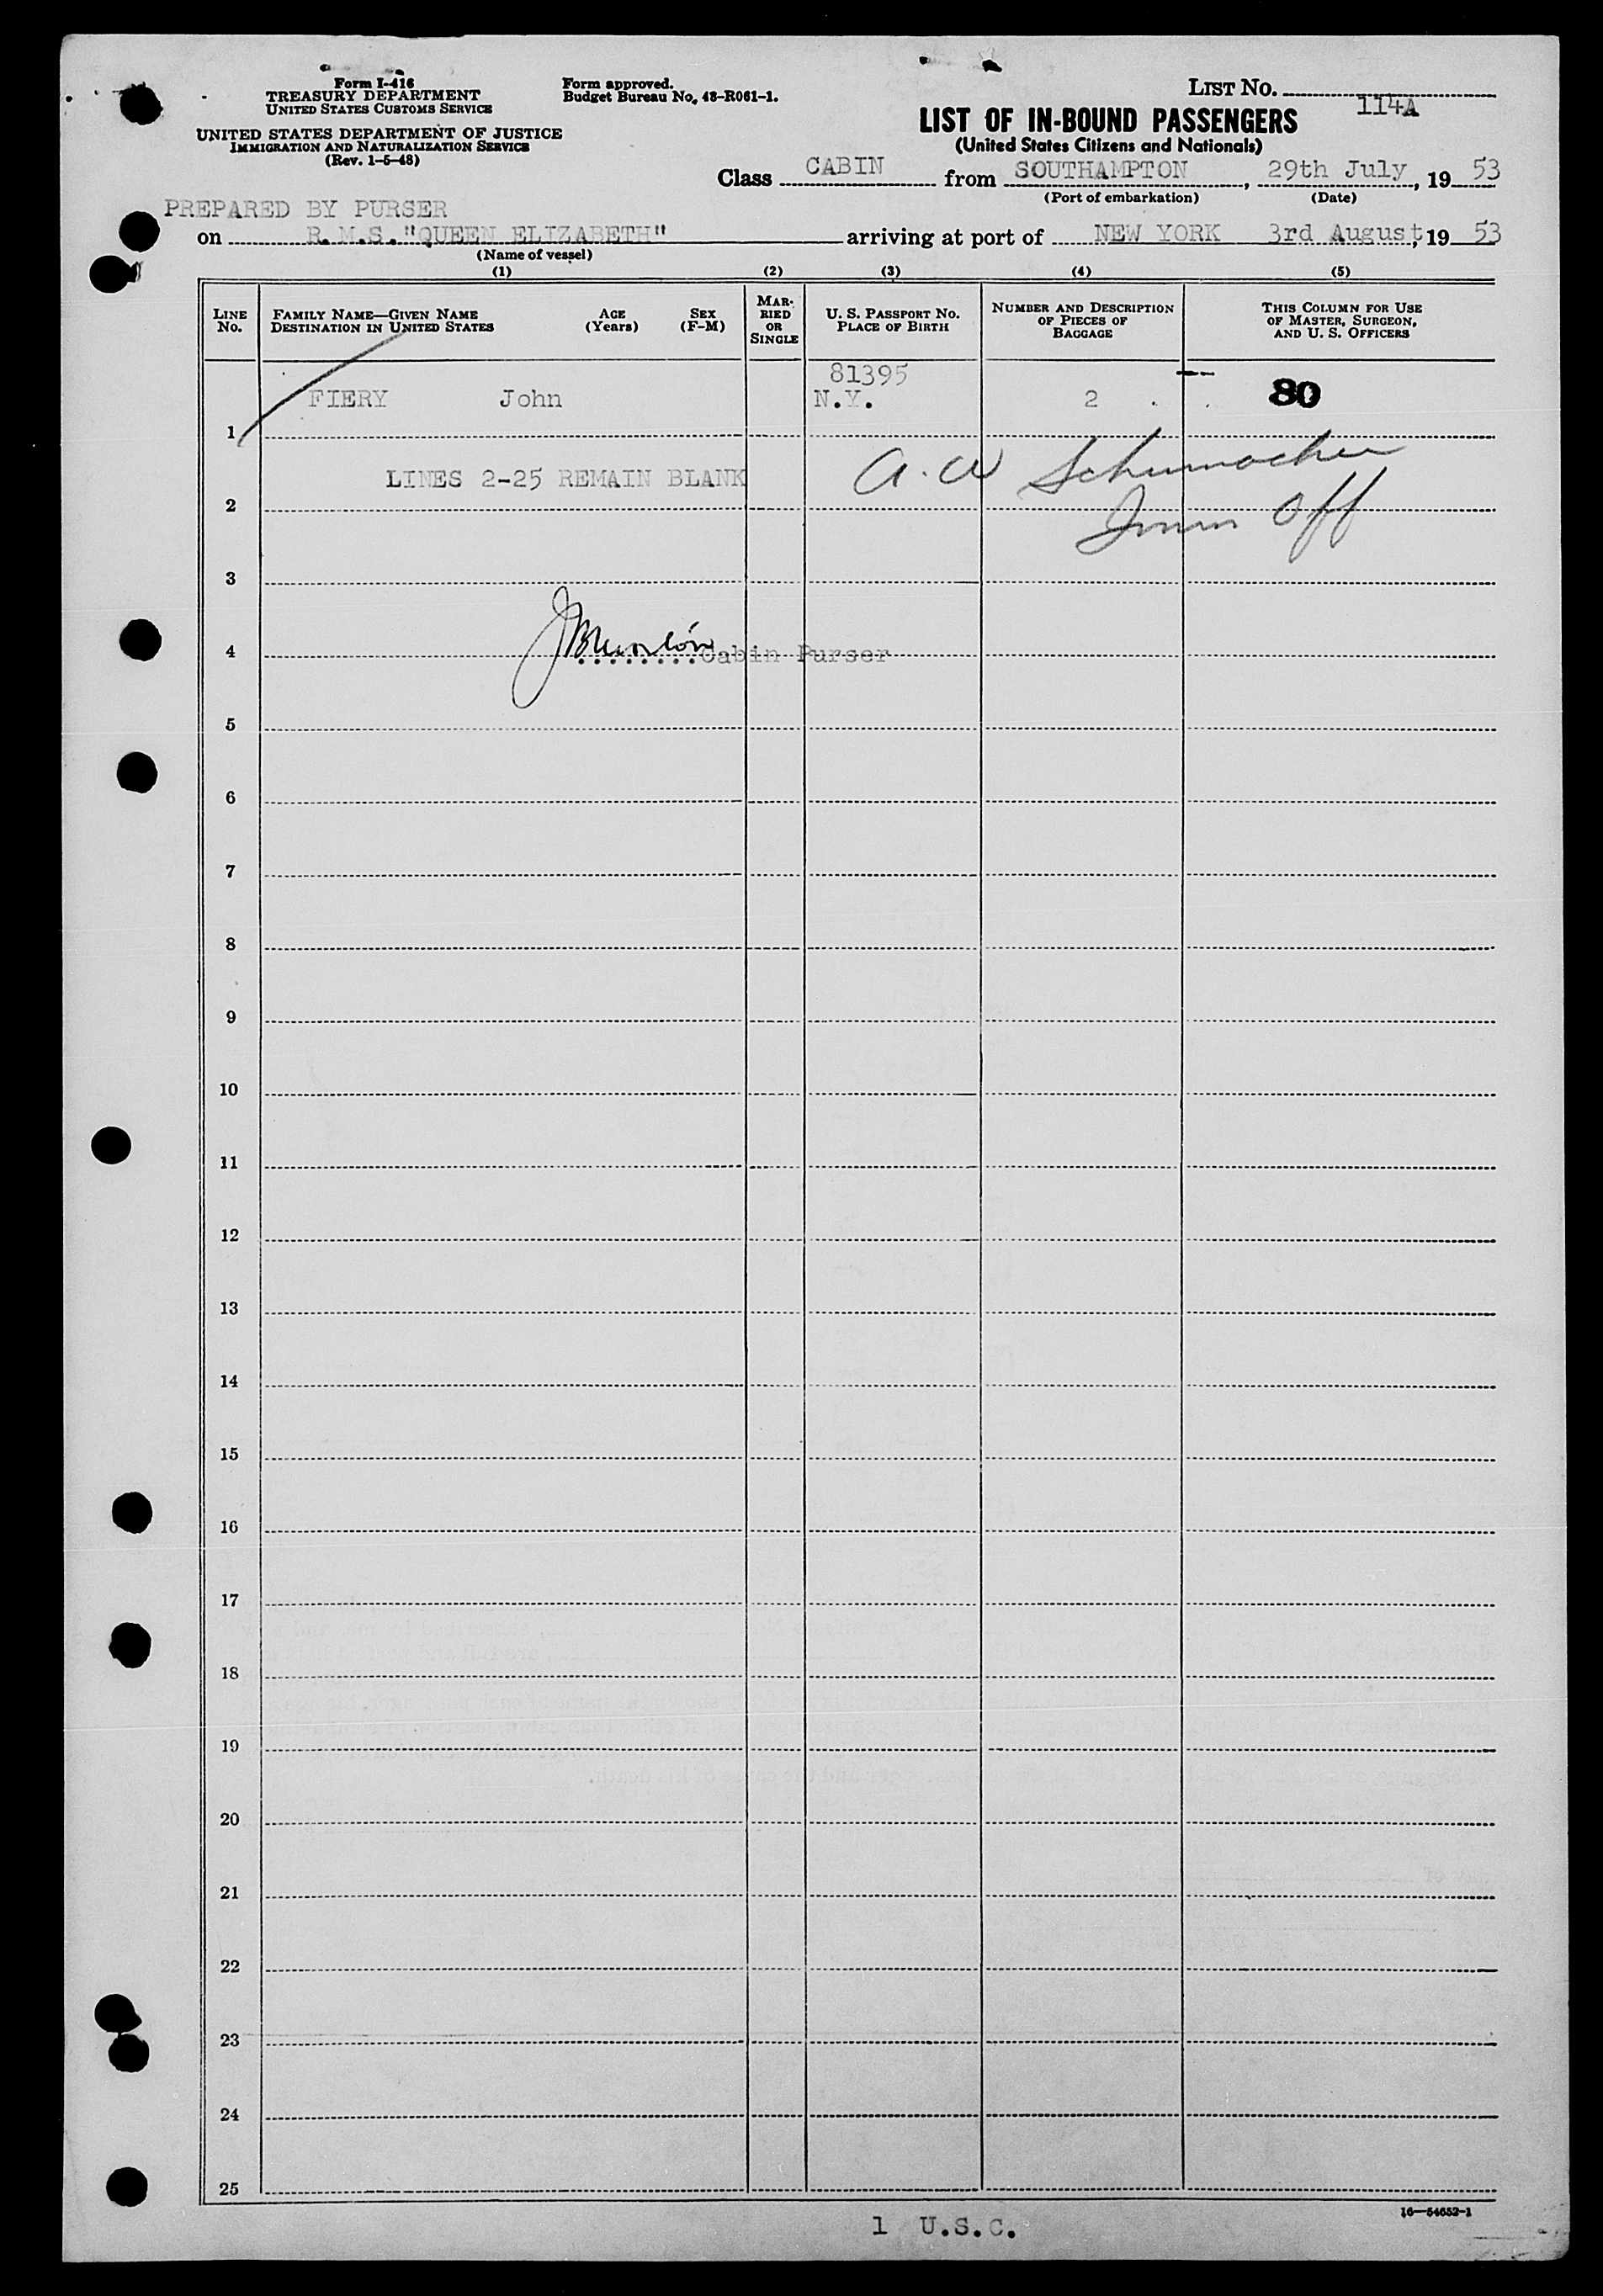 Form I-416
TREASURY DEPARTMENT
UNITED STATES CUSTOMS SERVICE
UNITED STATES DEPARTMENT OF JUSTICE
IMMIGRATION AND NATURALIZATION SERVICE
(Rev. 1-5-48)
Form approved.
Budget Bureau No. 43-R061-1.
LIST No. 114A
LIST OF IN-BOUND PASSENGERS
(United States Citizens and Nationals)
Class CABIN from SOUTHAMPTON, 29th July, 19 53
(Port of embarkation) (Date)
PREPARED BY PURSER
on R.M.S."QUEEN ELIZABETH" arriving at port of NEW YORK 3rd August, 19 53
(Name of vessel)
(1) (2) (3) (4) (5)
LINE No. FAMILY NAME—GIVEN NAME DESTINATION IN UNITED STATES AGE (Years) SEX (F-M) MARRIED OR SINGLE U. S. PASSPORT No. PLACE OF BIRTH NUMBER AND DESCRIPTION OF PIECES OF BAGGAGE THIS COLUMN FOR USE OF MASTER, SURGEON, AND U. S. OFFICERS
81395
FIERY John N.Y. 2 80
1
LINES 2-25 REMAIN BLANK A. W Schumacher
2 Imm Off
3
4 Cabin Purser
5
6
7
8
9
10
11
12
13
14
15
16
17
18
19
20
21
22
23
24
25
16—54652-1
1 U.S.C.